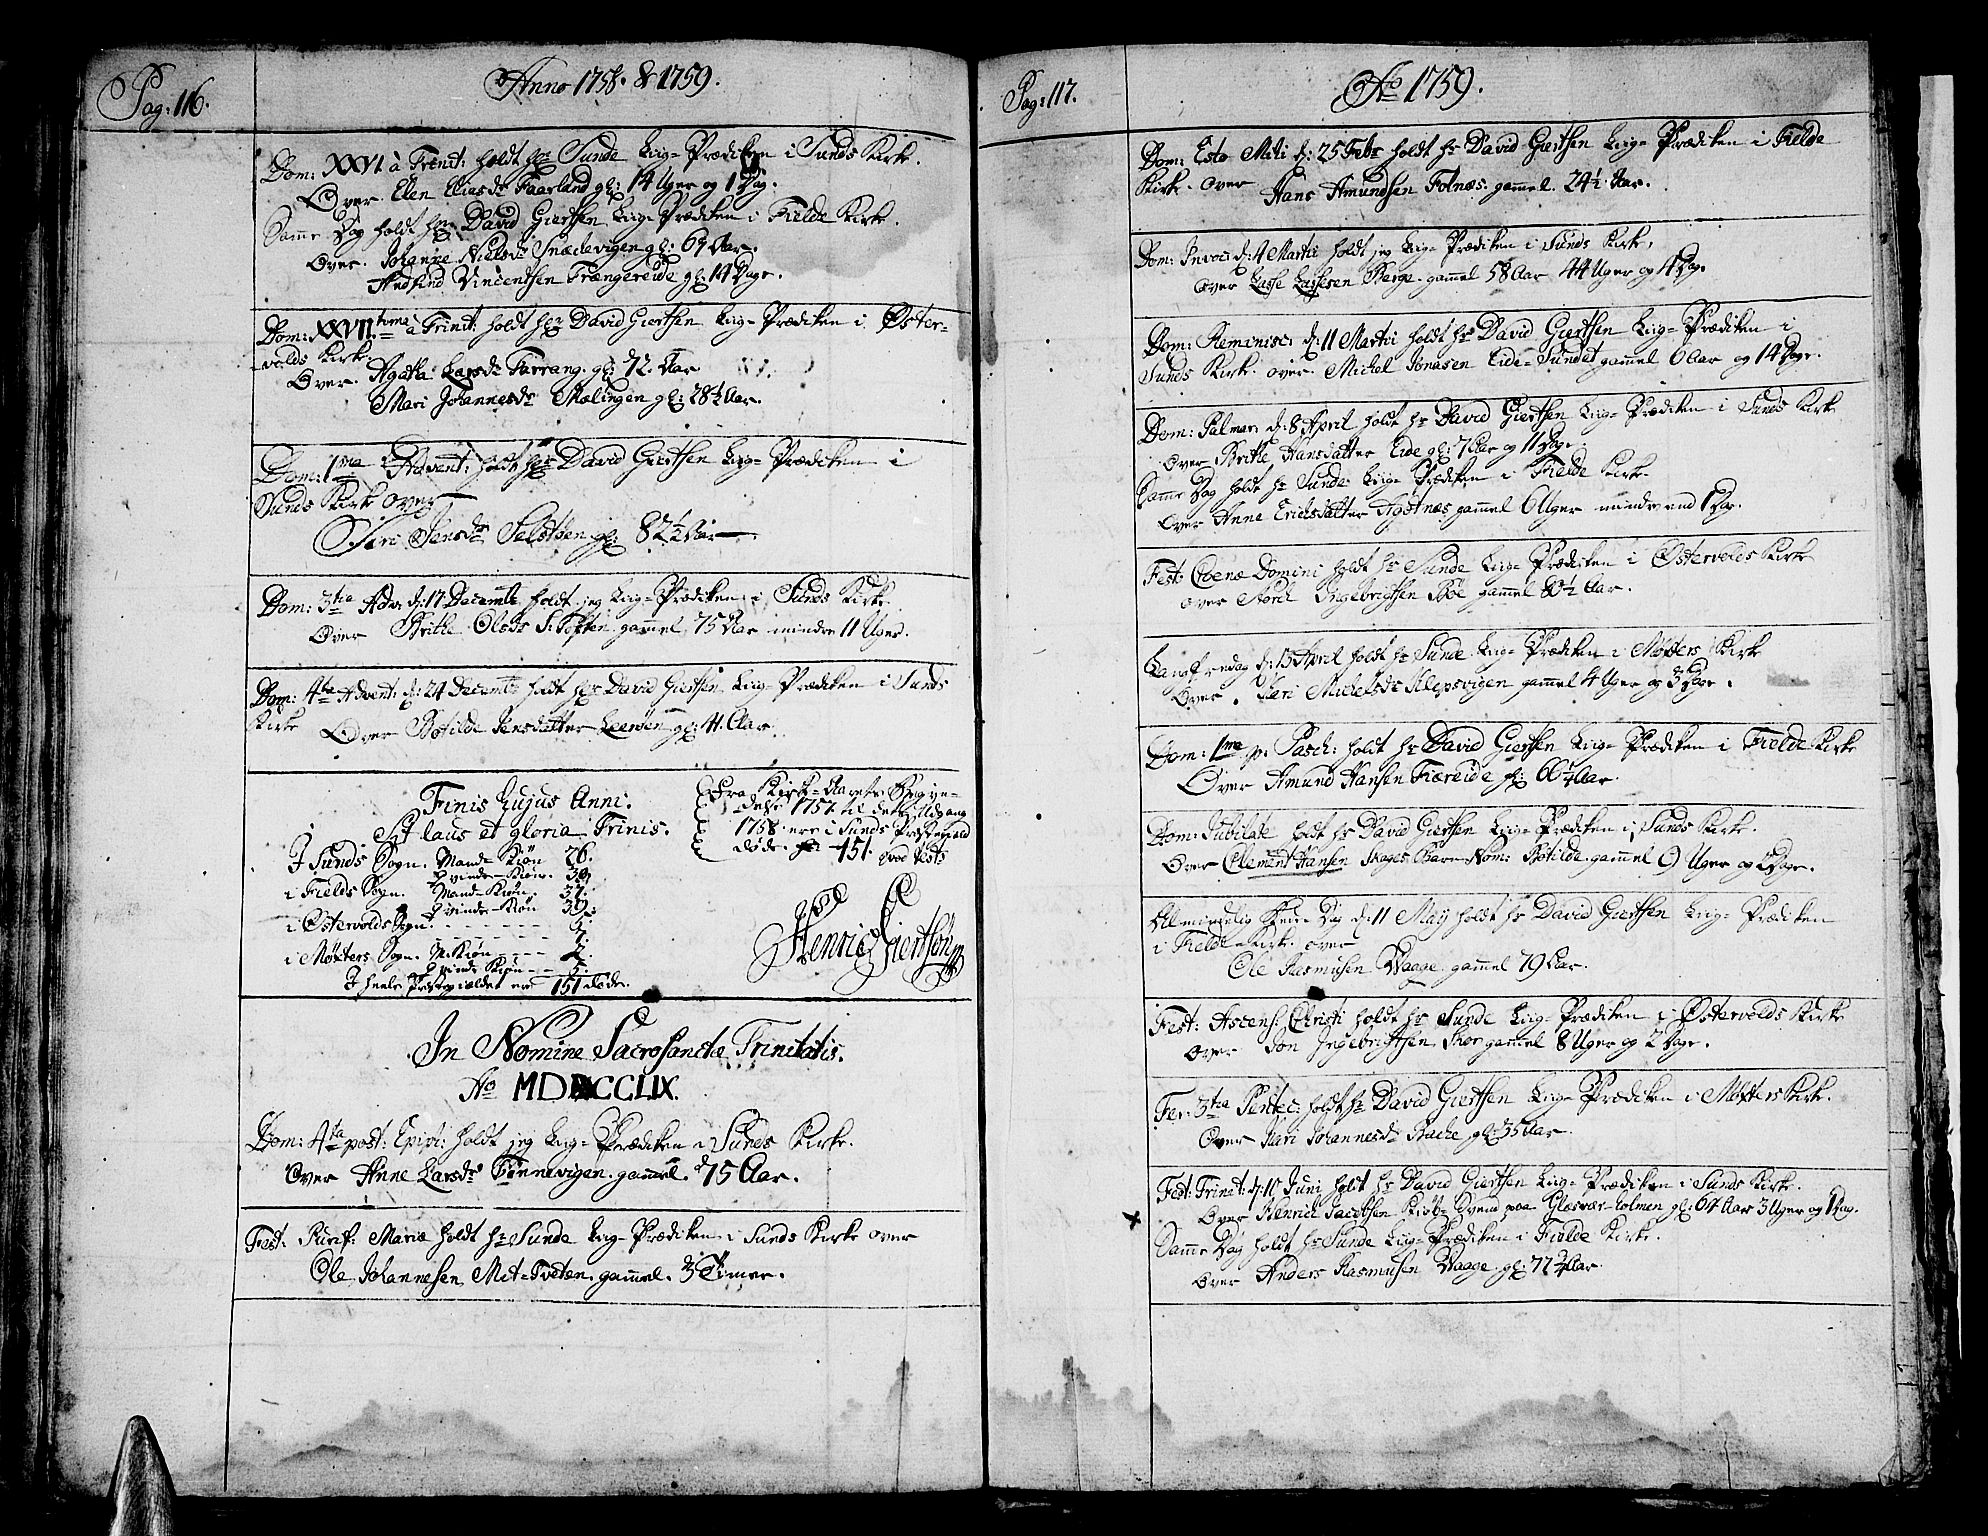 Pag: 116.
Anno 1758. & 1759.
Dom: XXVI. à Trinit: holdt hr Sunde Liig-Prædiken i Sunds Kirke.
Over. Elen Eliasdr Faarland gl: 14 Uger og 1 Dag.
Samme Dag holdt hr David Giertsen Liig-Prædiken i Fielde Kirke.
Over. Johanne Nielsdr Snædevigen gl: 69 Aar.
Vincentsen Trængereide gl: 14 Dage.
Dom: XXVII.tima à Trinit: holdt hr David Giertsen Liig-Prædiken i Øster-
-volds Kirke.
Over. Agatha Larsdr Farrang. gl: 72. Aar
Mari Johannesdr Mælingen gl: 28½ Aar.
Dom: 1ma Advent: holdt hr David Giertsen Liig-Prædiken i
Sunds Kirke over
Siri Jensdr gl: 82½ Aar
Dom: 3tia Adv: d: 17 Decembr holdt jeg Liig-Prædiken i Sunds Kirke
Over Brithe Olsdr S: Toften gammel 75 Aar mindre 11 Uger.
Dom: 4ta Advent: d: 24 Decembr holdt hr David Giertsen Liig-Prædiken i Sunds
Kirke Over Botilde Jensdatter Leeröen gl: 41. Aar.
Finis hujus Anni.
Sit laus et gloria Trinis.
I Sunds Sogn. Mand-Kiøn 26.
Qvinde-Kiøn. 30
i Fields Sogn. Mand-Kiøn. 37.
Qvinde-Kiøn 39.
i Østervolds Sogn. - - - - - - 5.
- - - - - - 7.
i Møxters Sogn. M: Kiøn - - - 2.
Qvinde Kiøn - - 5.
I heele Præstegieldet ere 151 døde.
Fra Kirke-Aarets Begyn-
-delse 1757. til dets Udgang
1758. ere i Sunds Præstegield
døde 151.
Henric Giertsøn
In Nomine Sacrosanctæ Trinitatis.
Ao MDCCLIX.
Dom: 4ta post: Epiph: holdt jeg Liig-Prædiken i Sunds Kirke.
Over Anne Larsdr Tønnevigen. gammel. 75 Aar.
Fest: Purif: Mariæ holdt hr Sunde Liig-Prædiken i Sunds Kirke over
Ole Johannesen Met-Tveten. gammel. 3 Timer.
Pag: 117.
Ao 1759.
Dom: Esto Mihi d: 25 Febr holdt hr David Giertsen Liig-Prædiken i Fielde
Kirke. Over Hans Amundsen Folnæs. gammel. 24½ Aar.
Dom: Invoc: d: 4 Martii holdt jeg Liig-Prædiken i Sunds Kirke,
Over Lasse Lassesen Berge. gammel 58 Aar 44 Uger og 4 Dag.
Dom: Reminisc: d: 11 Martii holdt hr David Giertsen Liig-Prædiken i
Sunds Kirke. over Michel Jonasen Eide-Sundet gammel 6 Aar og 14 Dage.
Dom: Palmar: d: 8 April holdt hr David Giertsen Liig-Prædiken i Sunds Kirke
Over Brithe Hansdatter Eide gl: 7 Aar og 11 Dage.
Samme Dag holdt hr Sunde Liig-Prædiken i Fielde Kirke.
Over Anne Erichsdatter Agotnæs gammel 6 Uger mindre end 1 Dag.
Fest: Coenæ Domini holdt hr Sunde Liig-Prædiken i Østervolds Kirke
over Ingebrigtsen Bøe gammel 80½ Aar.
Langfredag d: 13 April holdt hr Sunde Liig-Prædiken i Møxters Kirke
Over. Kari Michelsdr Klepsvigen gammel 4 Uger og 3 Dage.
Dom: 1ma p: Pasch: holdt hr David Giertsen Liig-Prædiken i Fielde Kirke
Over Amund Hansen Fiæreide gl: 60¼ Aar.
Dom: Jubilate holdt hr David Giertsen Liig-Prædiken i Sunds Kirke.
Over Clement Hansen Skages Barn Nom: Botilde gammel 9 Uger og 4 Dage.
Almindelig Bede-Dag d: 11 May holdt hr David Giertsen Liig-Prædiken
i Fielde-Kirke. over
Ole Rasmusen Waage. gammel 79 Aar.
Fest: Ascens: Christi holdt hr Sunde Liig-Prædiken i Østervolds Kirke
over Jon Ingebrigtsen Skor gammel 8 Uger og 2 Dage.
Fer: 3tia Pentec: holdt hr David Giertsen Liig-Prædiken i Møxters Kirke.
Over Kari Johannesdr Bache gl: 35 Aar.
Fest: Trinit: d: 10 Juni holdt hr David Giertsen Liig-Prædiken i Sunds Kirke.
Over Henrich Jacobsen Kiøb-Svend paa Glæsvær-holmen gl: 64 Aar 3 Uger og 1 Dag.
Samme Dag holdt hr Sunde Liig-Prædiken i Fielde Kirke.
Over Anders Rasmusen Waage. gl: 77¾ Aar.